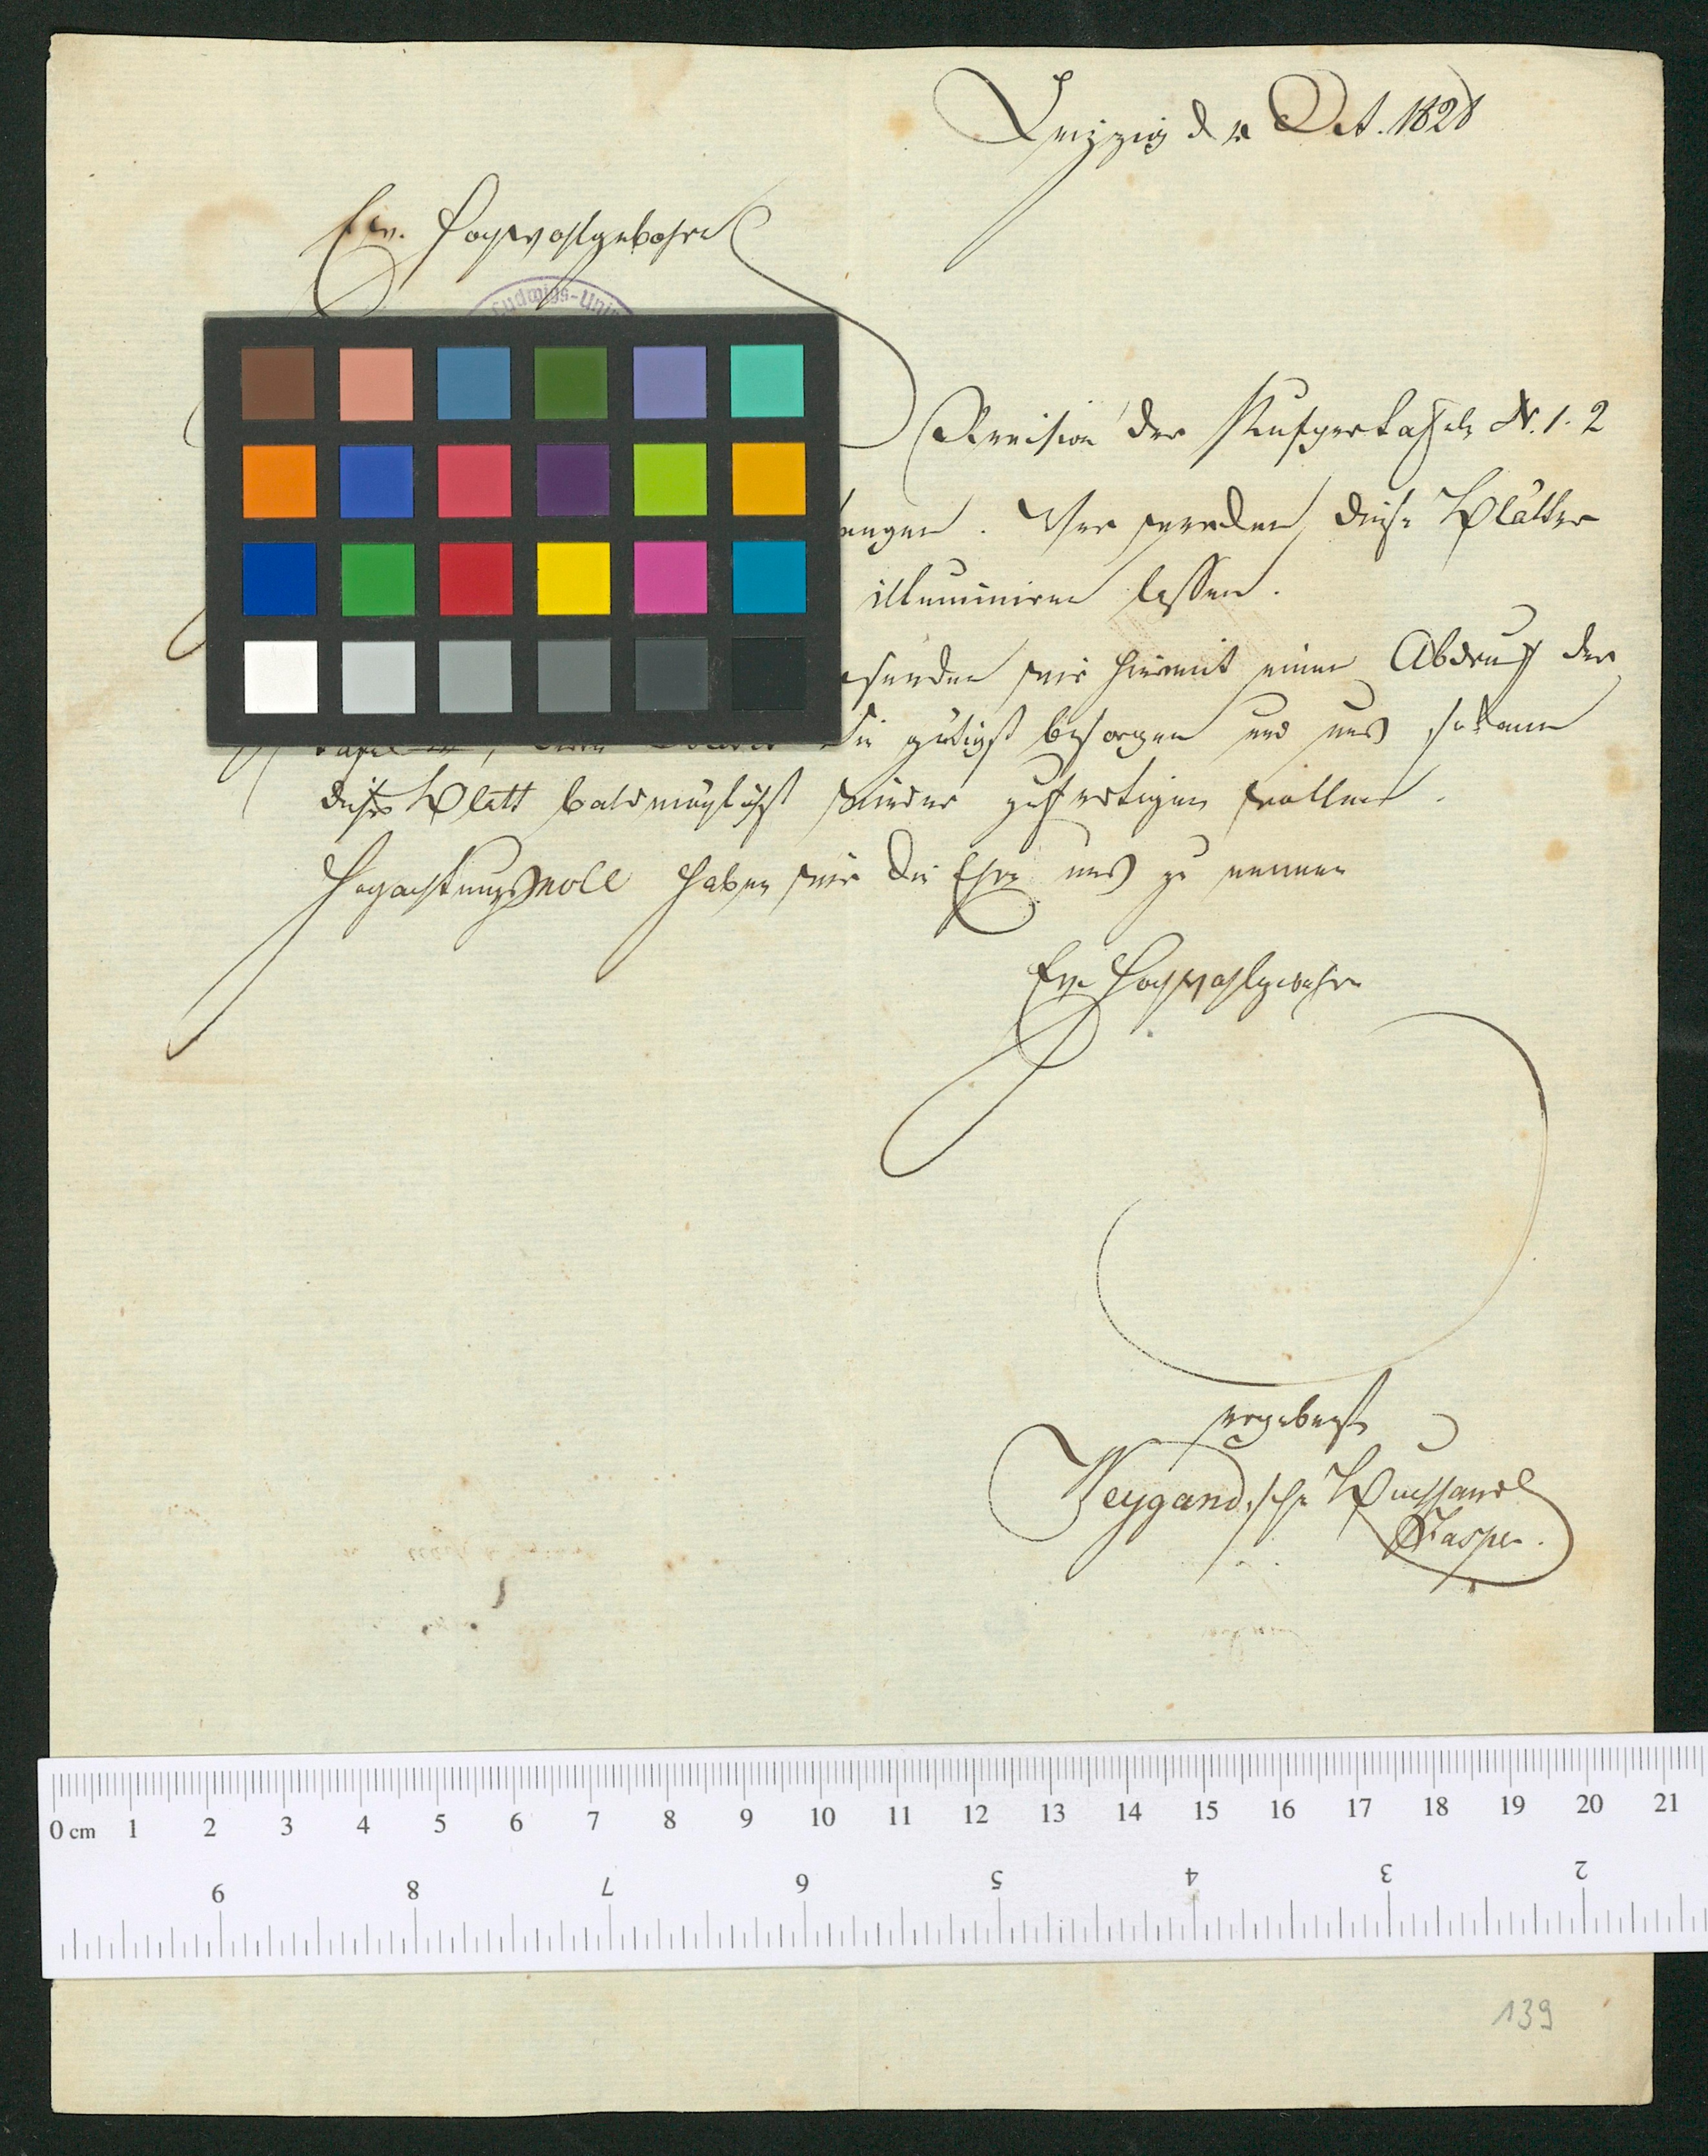 Leipzig d Oct. 1828
Ew. Hochwohlgebohrn
Ludwigs-Uni
Revision der Kupfertafeln N. 1. 2
angen. Wir werden diese Blätter
illuminiren lassen.
senden wir hiermit einen Abdruck der
Tafel Sie gütigst besorgen und uns sodann
dieses Blatt baldmöglichst wieder zufertigen wollen.
Hochachtungsvoll haben wir die Ehre uns zu nennen
Ew. Hochwohlgebohrn
ergebenste
Weygand'sche Buchhandl
Jasper.
0 cm 1 2 3 4 5 6 7 8 9 10 11 12 13 14 15 16 17 18 19 20 21
9 8 7 6 5 4 3 2
139